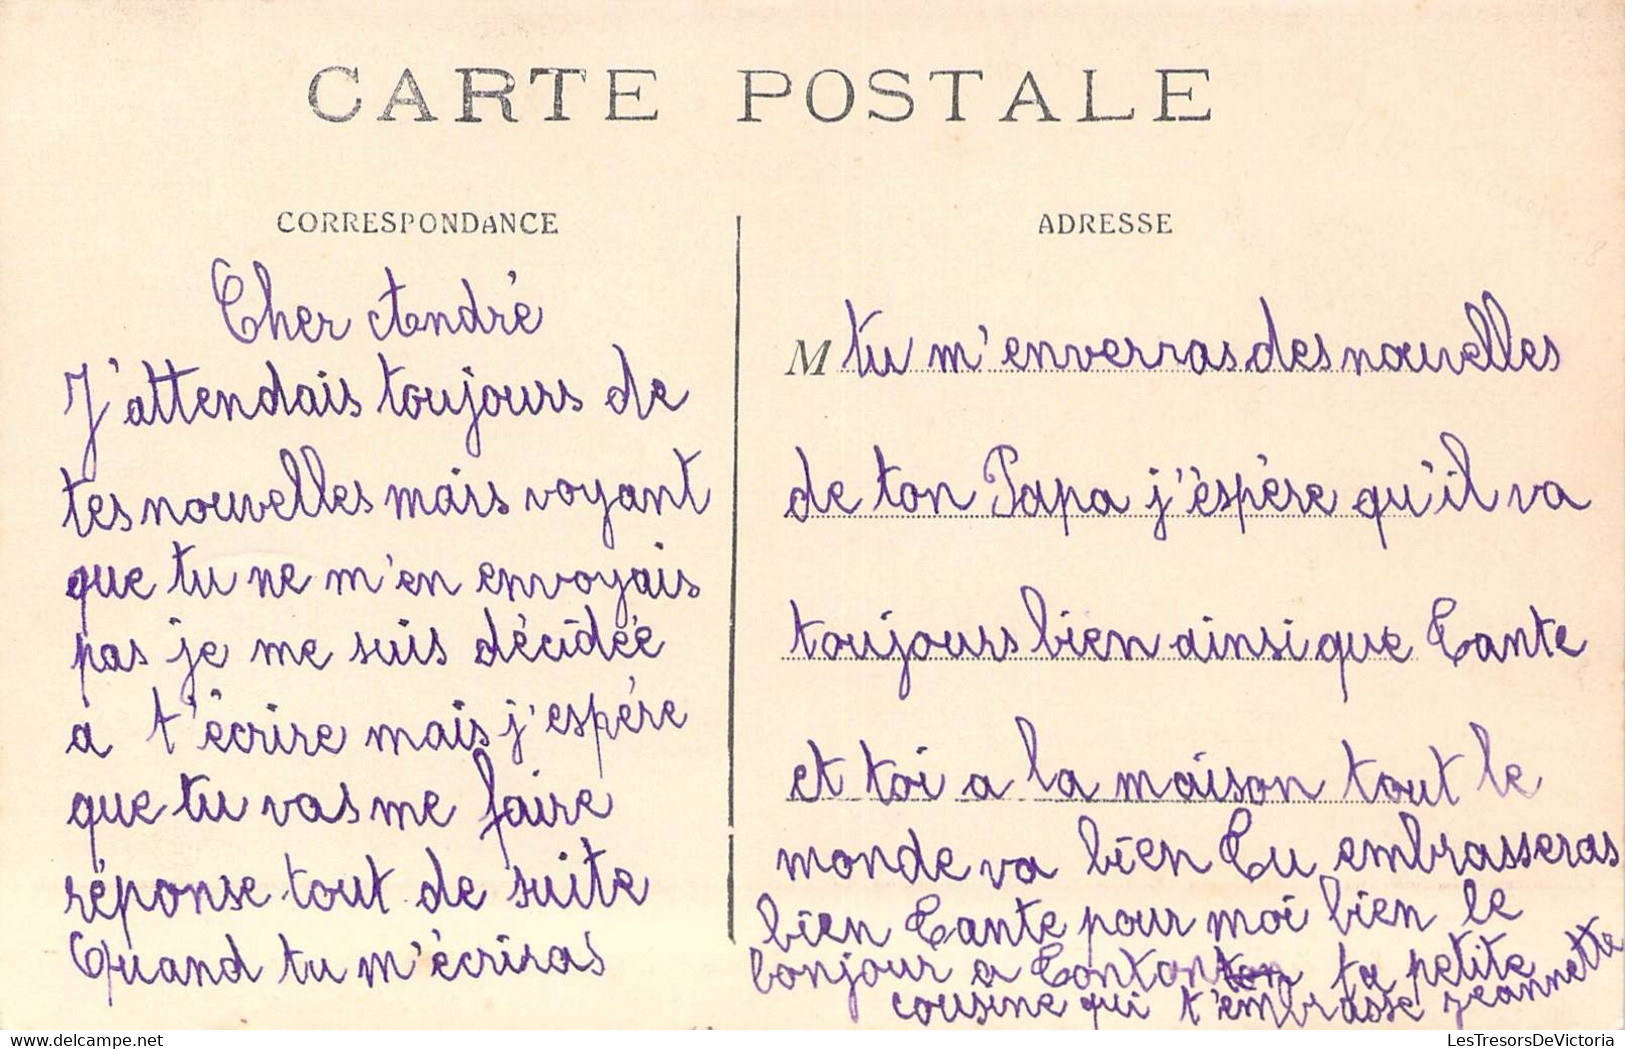 CARTE POSTALE
CORRESPONDANCE
Cher André
J'attendais toujours de
tes nouvelles mais voyant
que tu ne m'en envoyais
pas je me suis décidée
a t'écrire mais j'espére
que tu vas me faire
réponse tout de suite
Quand tu m'écriras
ADRESSE
M tu m'enverras des nouvelles
de ton Papa j'éspére qu'il va
toujours bien ainsi que Tante
et toi a la maison tout le
monde va bien Tu embrasseras
bien Tante pour moi bien le
bonjour a Tonton ta petite
cousine qui t'embrasse jeannette
LesTresorsDeVictoria